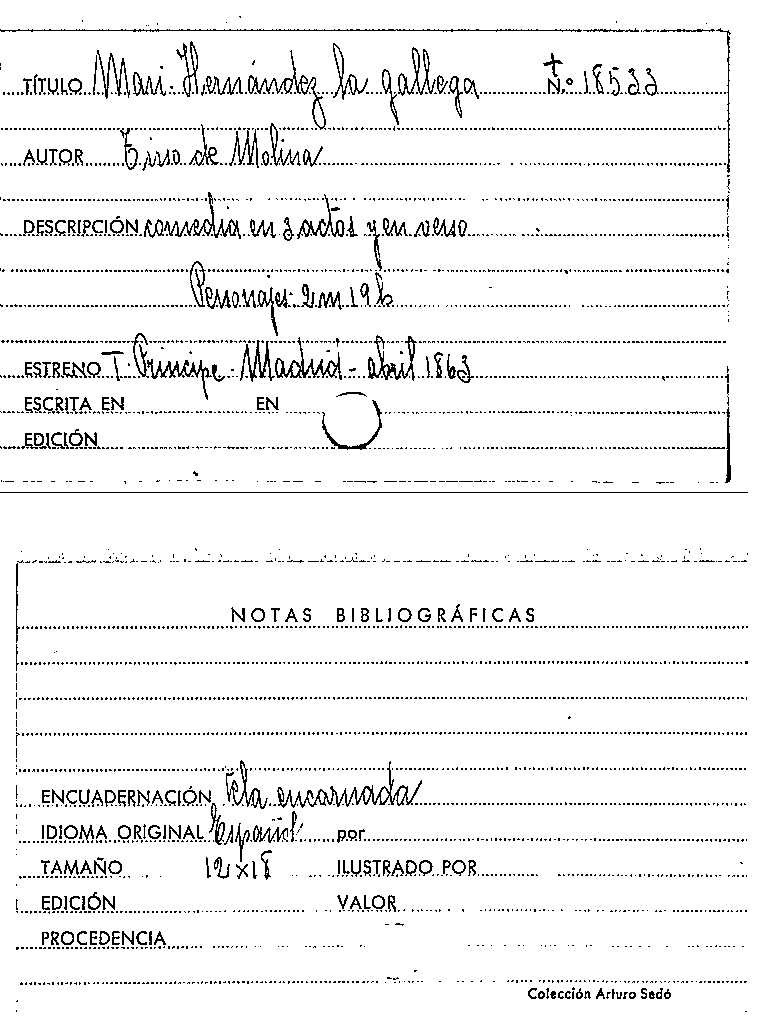 TÍTULO Mari-Hernández la gallega N.º 18533
AUTOR Tirso de Molina
DESCRIPCIÓN comedia en 3 actos y en verso
Personajes 2 m 19 h
ESTRENO T. Príncipe - Madrid - abril 1863
ESCRITA EN EN
EDICIÓN
NOTAS BIBLIOGRÁFICAS
ENCUADERNACIÓN Tela encarnada
IDIOMA ORIGINAL Español por
TAMAÑO 12x18 ILUSTRADO POR
EDICIÓN VALOR
PROCEDENCIA
Colección Arturo Sedó